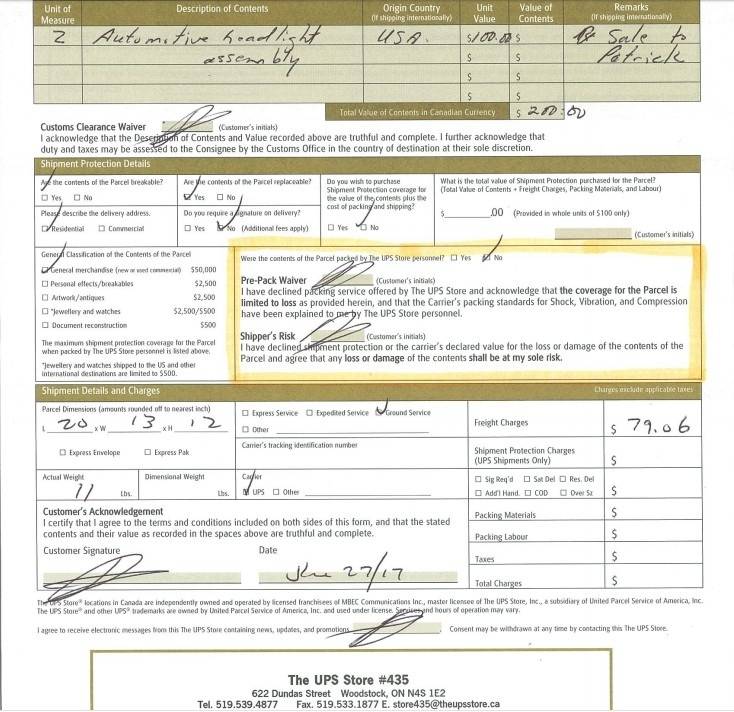 Unit of Measure Description of Contents Origin Country (If shipping internationally) Unit Value Value of Contents Remarks (If shipping internationally)
2 Automotive headlight USA. $100.00 $ Sale to
assembly $ $ Patrick
$ $
$ $
Total Value of Contents in Canadian Currency $ 200.00
Customs Clearance Waiver (Customer's initials)
I acknowledge that the Description of Contents and Value recorded above are truthful and complete. I further acknowledge that
duty and taxes may be assessed to the Consignee by the Customs Office in the country of destination at their sole discretion.
Shipment Protection Details
Are the contents of the Parcel breakable?
☐ Yes ☐ No
Are the contents of the Parcel replaceable?
☑ Yes ☐ No
Do you wish to purchase
Shipment Protection coverage for
the value of the contents plus the
cost of packing and shipping?
☐ Yes ☑ No
What is the total value of Shipment Protection purchased for the Parcel?
(Total Value of Contents + Freight Charges, Packing Materials, and Labour)
$ .00 (Provided in whole units of $100 only)
(Customer's initials)
Please describe the delivery address.
☑ Residential ☐ Commercial
Do you require a signature on delivery?
☐ Yes ☑ No (Additional fees apply)
General Classification of the Contents of the Parcel
☑ General merchandise (new or used commercial) $50,000
☐ Personal effects/breakables $2,500
☐ Artwork/antiques $2,500
☐ *Jewellery and watches $2,500/$500
☐ Document reconstruction $500
The maximum shipment protection coverage for the Parcel
when packed by The UPS Store personnel is listed above.
*Jewellery and watches shipped to the US and other
international destinations are limited to $500.
Were the contents of the Parcel packed by The UPS Store personnel? ☐ Yes ☑ No
Pre-Pack Waiver (Customer's initials)
I have declined packing service offered by The UPS Store and acknowledge that the coverage for the Parcel is
limited to loss as provided herein, and that the Carrier's packing standards for Shock, Vibration, and Compression
have been explained to me by The UPS Store personnel.
Shipper's Risk (Customer's initials)
I have declined shipment protection or the carrier's declared value for the loss or damage of the contents of the
Parcel and agree that any loss or damage of the contents shall be at my sole risk.
Shipment Details and Charges Charges exclude applicable taxes
Parcel Dimensions (amounts rounded off to nearest inch)
L 20 x W 13 x H 12
☐ Express Envelope ☐ Express Pak
☐ Express Service ☐ Expedited Service ☑ Ground Service
☐ Other
Carrier's tracking identification number
Actual Weight
11 Lbs.
Dimensional Weight
Lbs.
Carrier
☑ UPS ☐ Other
Freight Charges $ 79.06
Shipment Protection Charges
(UPS Shipments Only) $
☐ Sig Req'd ☐ Sat Del ☐ Res. Del
☐ Add'l Hand. ☐ COD ☐ Over Sz $
Packing Materials $
Packing Labour $
Taxes $
Total Charges $
Customer's Acknowledgement
I certify that I agree to the terms and conditions included on both sides of this form, and that the stated
contents and their value as recorded in the spaces above are truthful and complete.
Customer Signature Date
June 27/17
The UPS Store® locations in Canada are independently owned and operated by licensed franchisees of MBEC Communications Inc., master licensee of The UPS Store, Inc., a subsidiary of United Parcel Service of America, Inc.
The UPS Store® and other UPS® trademarks are owned by United Parcel Service of America, Inc. and used under license. Services and hours of operation may vary.
I agree to receive electronic messages from this The UPS Store containing news, updates, and promotions. Consent may be withdrawn at any time by contacting this The UPS Store.
The UPS Store #435
622 Dundas Street Woodstock, ON N4S 1E2
Tel. 519.539.4877 Fax. 519.533.1877 E. store435@theupsstore.ca